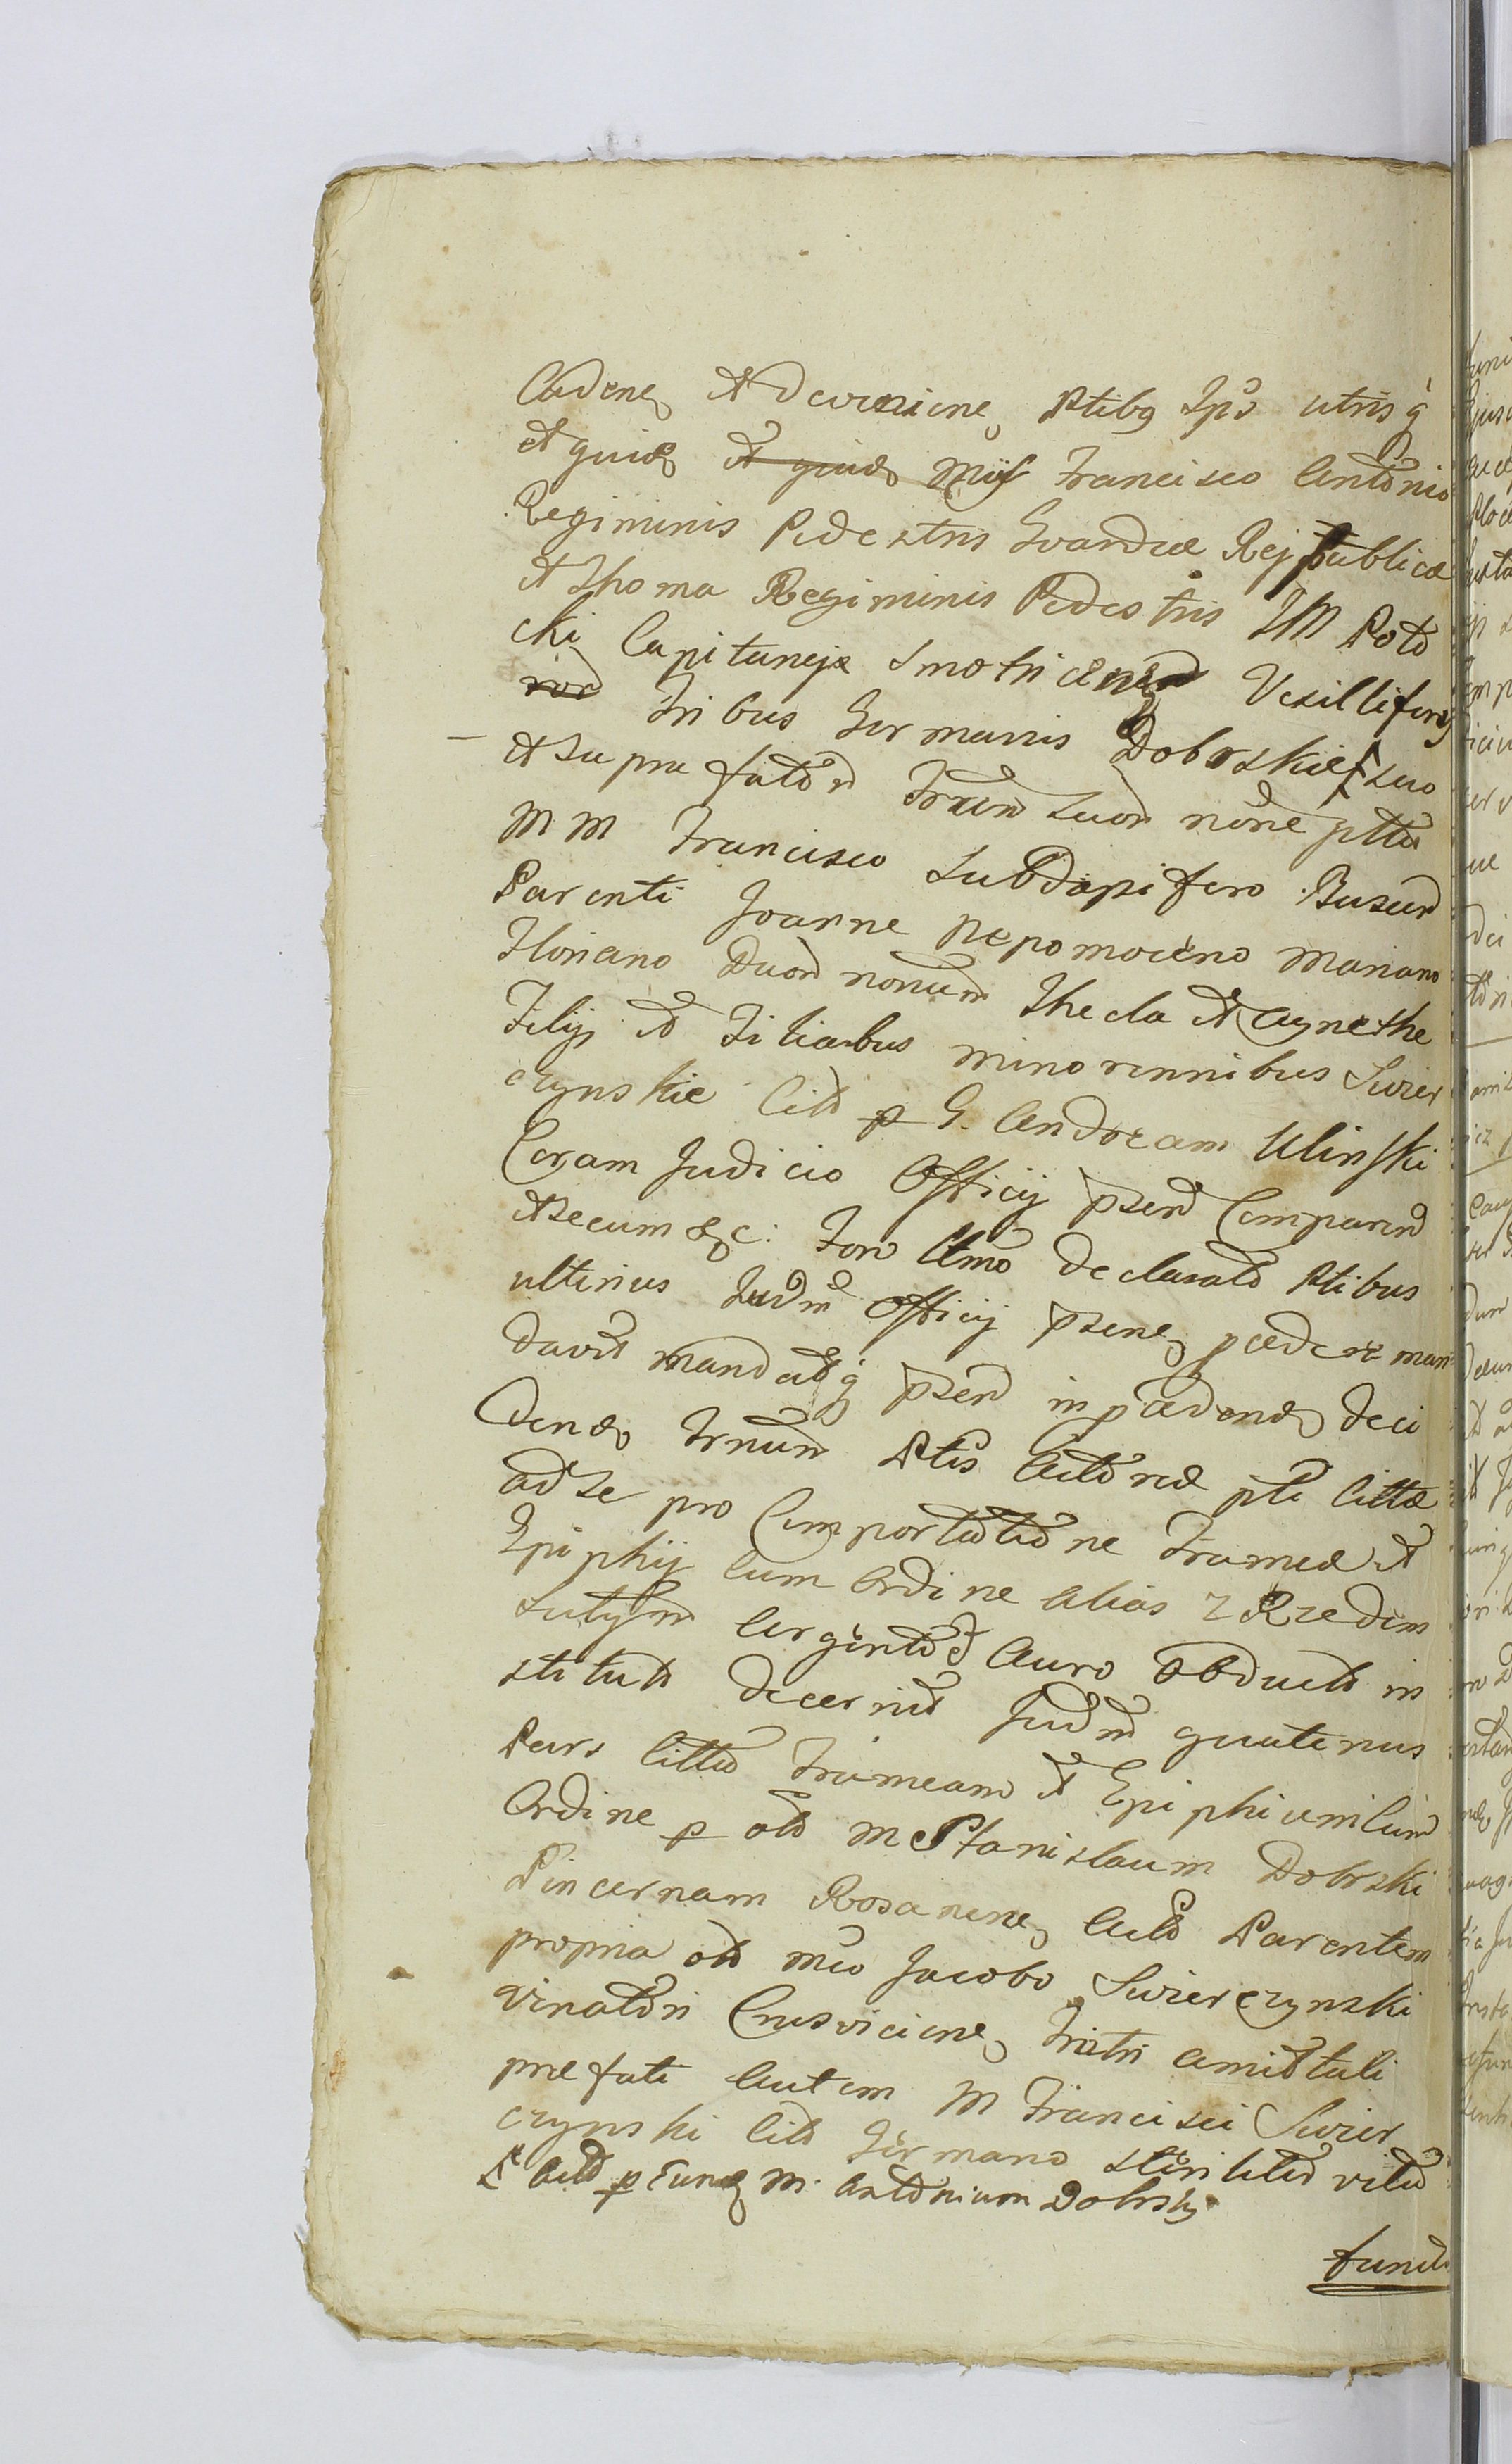 Cadene et deveniene Ptibq Ips utrisq
et quide et quide Mij Francisco Antonio
Regiminis Pedestris Gvardiæ Reipublicæ
et Thoma Regiminis Pedestris IM Poto
cki Capitanejæ Smotricen Vexillifero
Tribus Germanis Dobrskie suo
et suprafator Frum suor noe
MM Francisco Subdapifero Buscen
Parenti Joanne Nepomoceno Mariano
Floriano Duor nonum Thecla et Agnethe
Filijs et Filiabus minorennibus Swier
czynskie Citt p G. Andream Ulinski
Coram Judicio Officij psen Comparen
et secum &c: Foro Utmo declarato Ptibus
ulterius Judm Officij psene pcedere man
davit mandatq psen in pcedene deci
dendo Trnum Ptis Actoreæ pte Cittæ
ad se pro Comportatione Frameæ et
Epiphij cum Ordine alias z Rzedem
Sutym Argento et Auro obducto in
stituto decernit Judm quatenus
Pars Citta Frameam et Epiphium cum
Ordine p olo M Stanislaum Dobrski
Pincernam Rosanene Acto Parentem
propria olo Mco Jacobo Swierczynski
Vinatori Crusviciene Fratri amitali
præfati autem M Francisci Swier
czynski Citt Germano sterili vita
Actt p Eunq M. Antonium Dobrski
functo